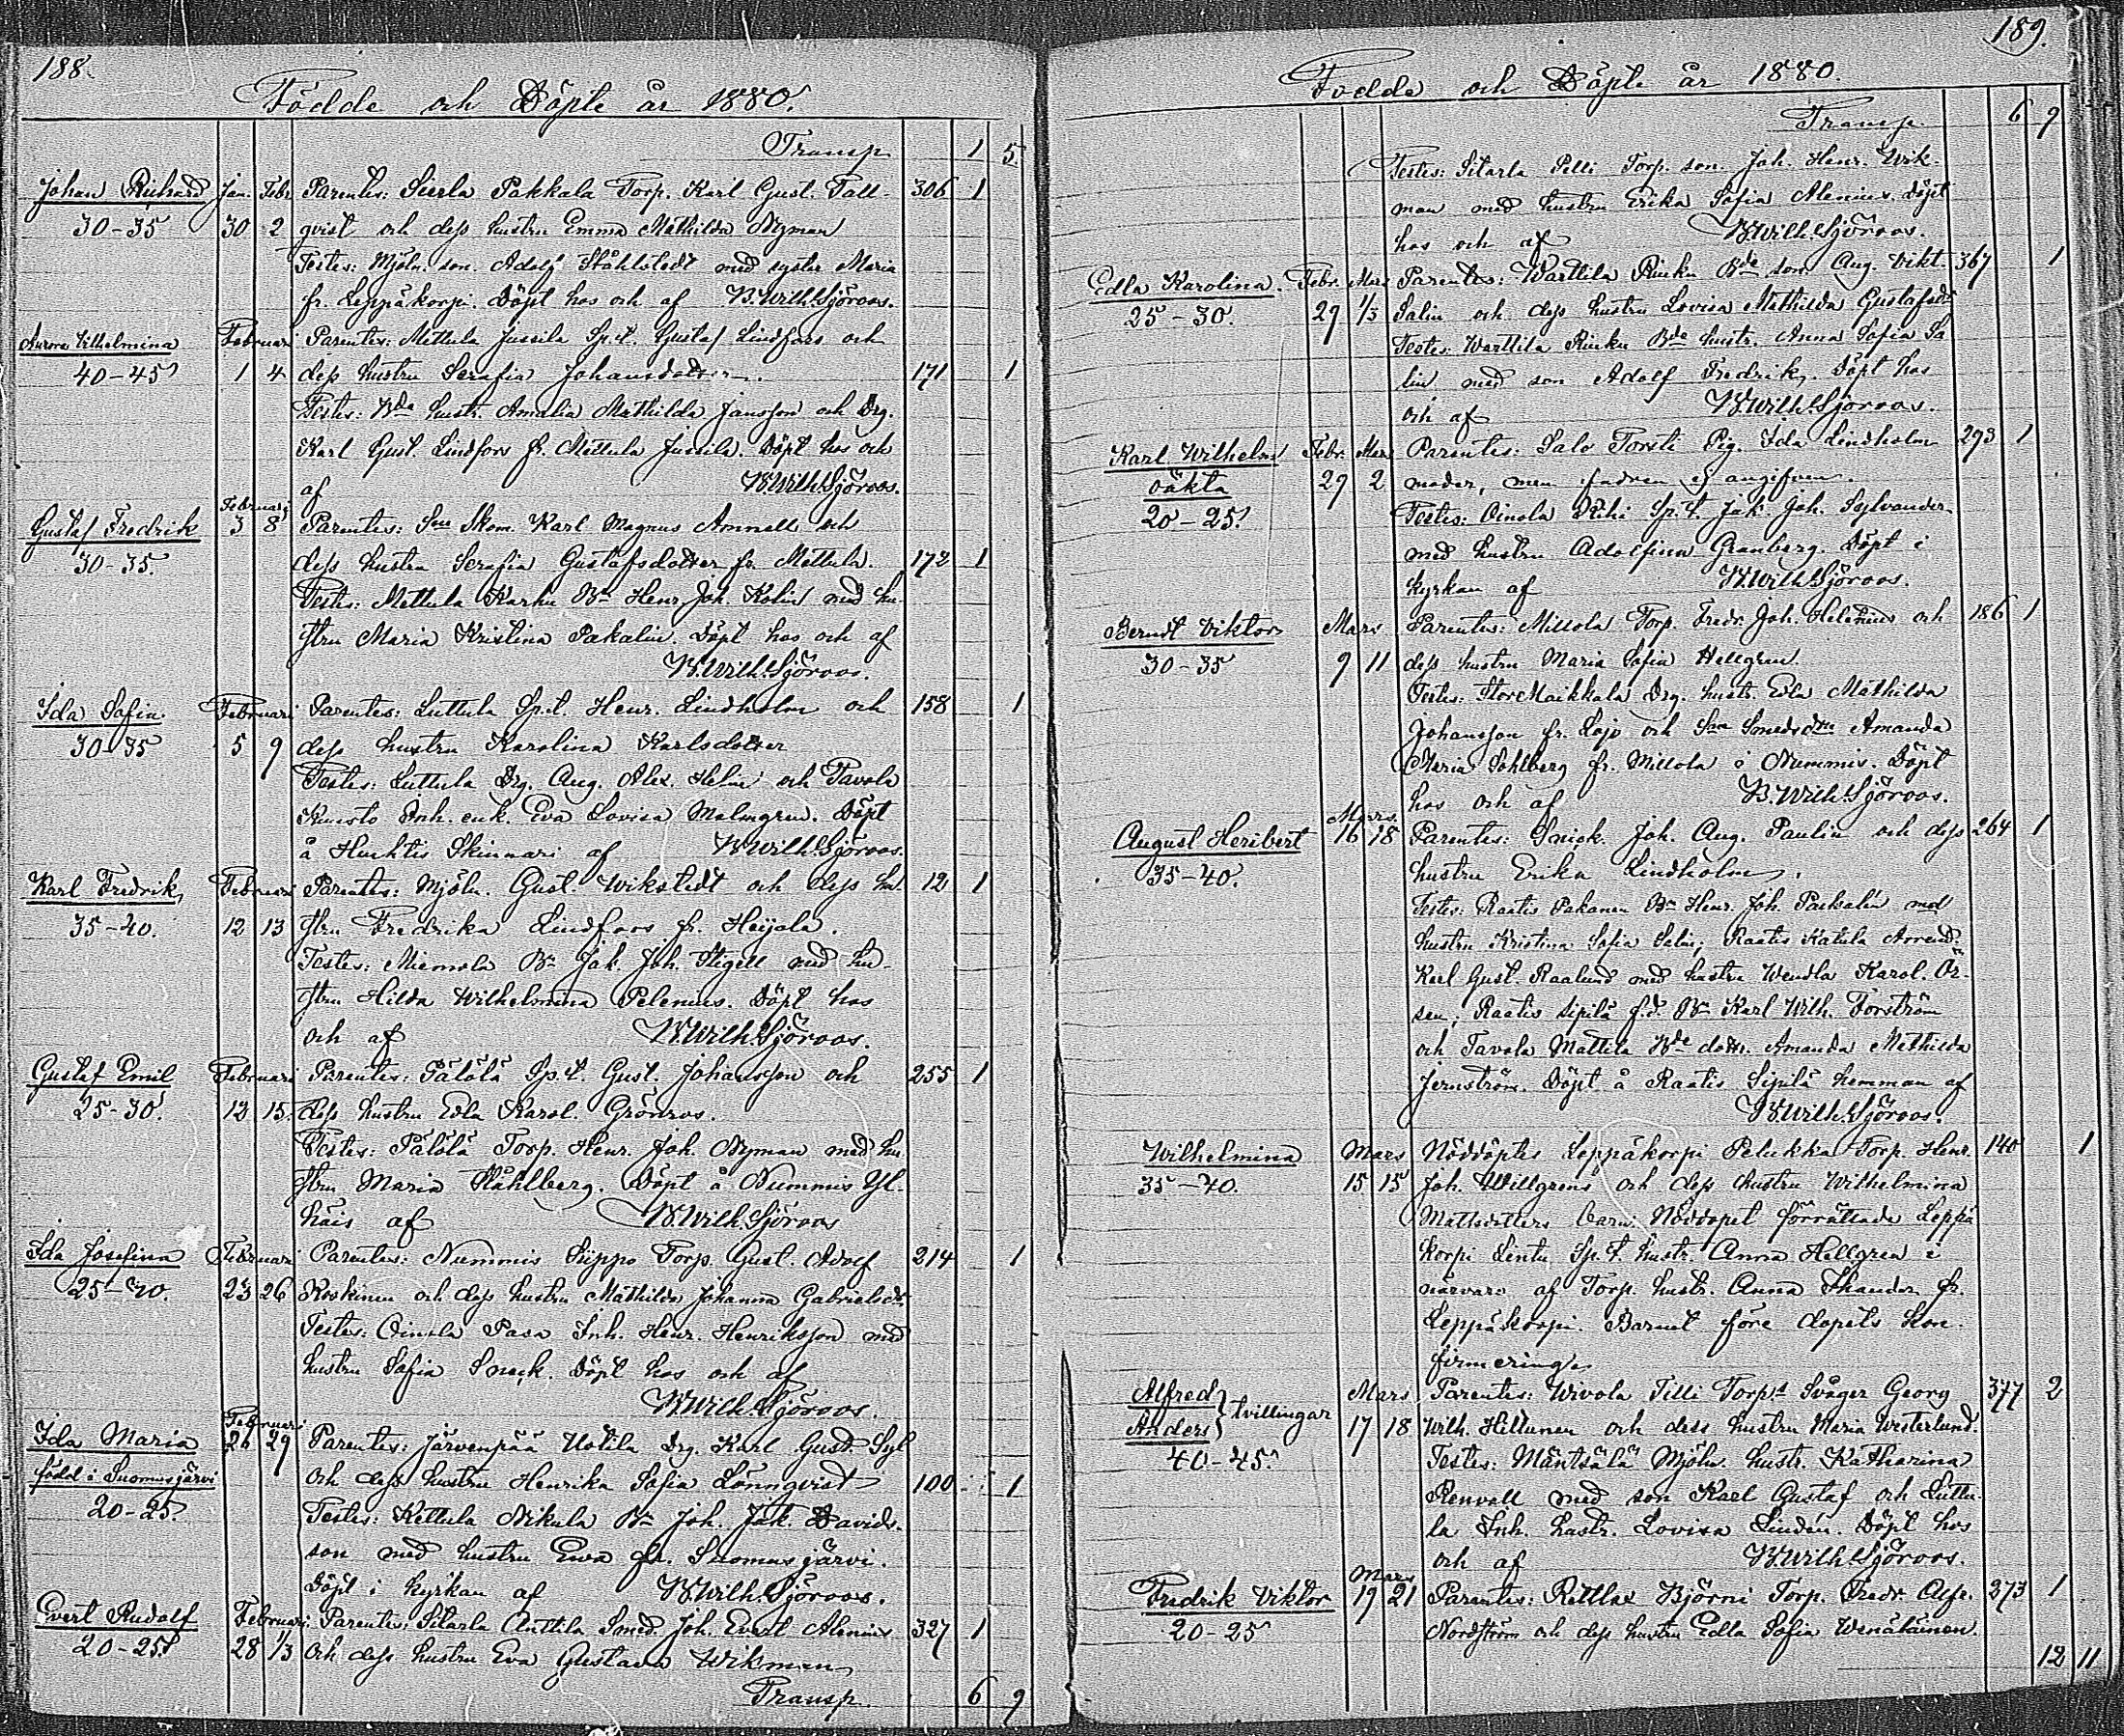 188.
Födde och Döpte år 1880.
Transp. 1 5.
Johan Richard Jan. Febr. Parentes: Sierla Pakkala Torp. Karl Gust. Tall- 306 1
30-35 30 2 qvist och dess hustru Emma Mathilda Nyman
Testes: Mjöln. son. Adolf Ståhlstedt med syster Maria
fr. Leppäkorpi. Döpt hos och af B.Wilh.Sjöroos.
Aurora Vilhelmina Februari Parentes: Mettula Jussila Sp.t. Gustaf Lindfors och
40-45 1 4 dess hustru Serafia Johansdotter. 171 1
Testes: Bde hustr. Amalia Mathilda Jansson och Drg.
Karl Gust. Lindfors fr. Mettula Jussila. Döpt hos och
af B.Wilh.Sjöroos.
Gustaf Fredrik Februari 3 8 Parentes: Skom. Karl Magnus Amnell och
30-35. dess hustru Serafia Gustafsdotter fr. Mettula. 172 1
Testes: Mettula Karhu Bn Henr. Joh. Kolin med hu-
stru Maria Kristina Pakalin. Döpt hos och af
B.Wilh.Sjöroos.
Ida Sofia Februari Parentes: Luttula Sp.t. Henr. Lindholm och 158 1
30-35 5 9 dess hustru Karolina Karlsdotter
Testes: Luttula Drg. Aug. Alex. Helin och Tavola
Knuisto Inh. enk. Eva Lovisa Malmgren. Döpt
å Huhtis Skinnari af B.Wilh.Sjöroos.
Karl Fredrik Februari Parentes: Mjöln. Gust. Wikstedt och dess hu- 12 1
35-40. 12 13 stru Fredrika Lindfors fr. Heijala.
Testes: Miemola Bn Jak. Joh. Stigell med hu-
stru Hilda Wilhelmina Pelenius. Döpt hos
och af B.Wilh.Sjöroos.
Gustaf Emil Februari Parentes: Pälölä Sp.t. Gust. Johansson och 255 1
25-30. 12 15. dess hustru Edla Karol. Grönroos.
Testes: Pälölä Torp. Henr. Joh. Nyman med hu-
stru Maria Ståhlberg. Döpt å Nummis Yl-
häis af B.Wilh.Sjöroos
Ida Josefina Februari Parentes: Nummis Siippo Torp. Gust. Adolf 214 1
23 26 Koskinen och dess hustru Mathilda Johanna Gabrielsdr.
Testes: Oinola Pasa Inh. Henr. Henriksson med
hustru Sofia Sneck. Döpt hos och af
B.Wilh.Sjöroos.
Ida Maria Februari 26 29 Parentes: Järvenpää Uotila Drg. Karl Gust. Syl
född i Suomusjärvi och dess hustru Henrika Sofia Lönnqvist 100 1
20-25. Testes: Kettula Nikula Bn Joh. Jak. Davids-
son med hustru Ewa fr. Suomusjärvi.
Döpt i kyrkan af B.Wilh.Sjöroos.
Evert Rudolf Februari Parentes: Sitarla Anttila Smed. Joh. Evert Alenius 327 1
20-25. 28 1/3 och dess hustru Eva Gustava Wikman
Transp. 6 9
189.
Födde och Döpte år 1880.
Transp. 6 9
Testes: Sitarla Pelli Torp. son. Joh. Henr. Wik-
man med hustru Erika Sofia Alenius. Döpt
hos och af B.Wilh.Sjöroos.
Edla Karolina. Febr. Mars Parentes: Warttila Rinku Bde son Aug. Vikt. 367 1
25-30. 29 1/3 Salin och dess hustru Lovisa Mathilda Gustafsdr
Testes: Warttila Rinku Bde hustr. Anna Sofia Sa
lin med son Adolf Fredrik. Döpt hos
och af B.Wilh.Sjöroos.
Karl Wilhelm Febr. Mars Parentes: Salo Torsti Pig. Ida Lindholm 293 1
oäkta 29 2 moder, men fadren ej angifven.
20-25. Testes: Oinola Sp.t. Jak. Joh. Sylvander
med hustru Adolfina Granberg. Döpt i
kyrkan af B.Wilh.Sjöroos.
Berndt Viktor Mars Parentes: Millola Torp. Fredr. Joh. Helenius och 186 1
30-35 9 11 dess hustru Maria Sofia Hellgren.
Testes: StorMaikkala Drg. hustr. Eva Mathilda
Johansson fr. Lojo och Amanda
Maria Sohlberg fr. Millola i Nummis. Döpt
hos och af B.Wilh.Sjöroos.
August Heribert Mars. 16 18 Parentes: Snick. Joh. Aug. Paulin och dess 264 1
35-40. hustru Erika Lindholm.
Testes: Raatis Pakanen Bn Henr. Joh. Paskalin med
hustru Kristina Sofia Salin; Raatis Katula Arrend.
Karl Gust. Raalund med hustru Wendla Karol. Ör-
sen, Raatis Sipilä f.d. Bn Karl Wilh. Forström
och Tavola Mattila Bde dottr. Amanda Mathilda
Jernström. Döpt å Raatis Sipilä hemman af
B.Wilh.Sjöroos.
Wilhelmina Mars Nöddöptes Leppäkorpi Pelukka Torp. Henr. 140 1
35-40. 15 15 Joh. Willgrens och dess hustru Wilhelmina
Mattsdotters barn. Nöddopet förrättade Leppä
korpi Lentu Sp.t. hustr. Anna Hellgren i
närvaro af Torp. hustr. Anna Skander fr.
Leppäkorpi. Barnet före dopets kon-
firmering.
Alfred} Mars Parentes: Wivola Tilli Torps Svåger Georg 377 2
Anders} tvillingar 17 18 Wilh. Hiltunen och dess hustru Maria Westerlund.
40-45. Testes: Mäntsälä Mjöln. hustr. Katharina
Renvall med son Karl Gustaf och Luttu-
la Inh. hustr. Lovisa Lindén. Döpt hos
och af B.Wilh.Sjöroos.
Fredrik Viktor Mars 19 21 Parentes: Rettlax Björni Torp. Fredr. Alfr. 373 1
20-25 Nordström och dess hustru Edla Sofia Wenäläinen.
12 11